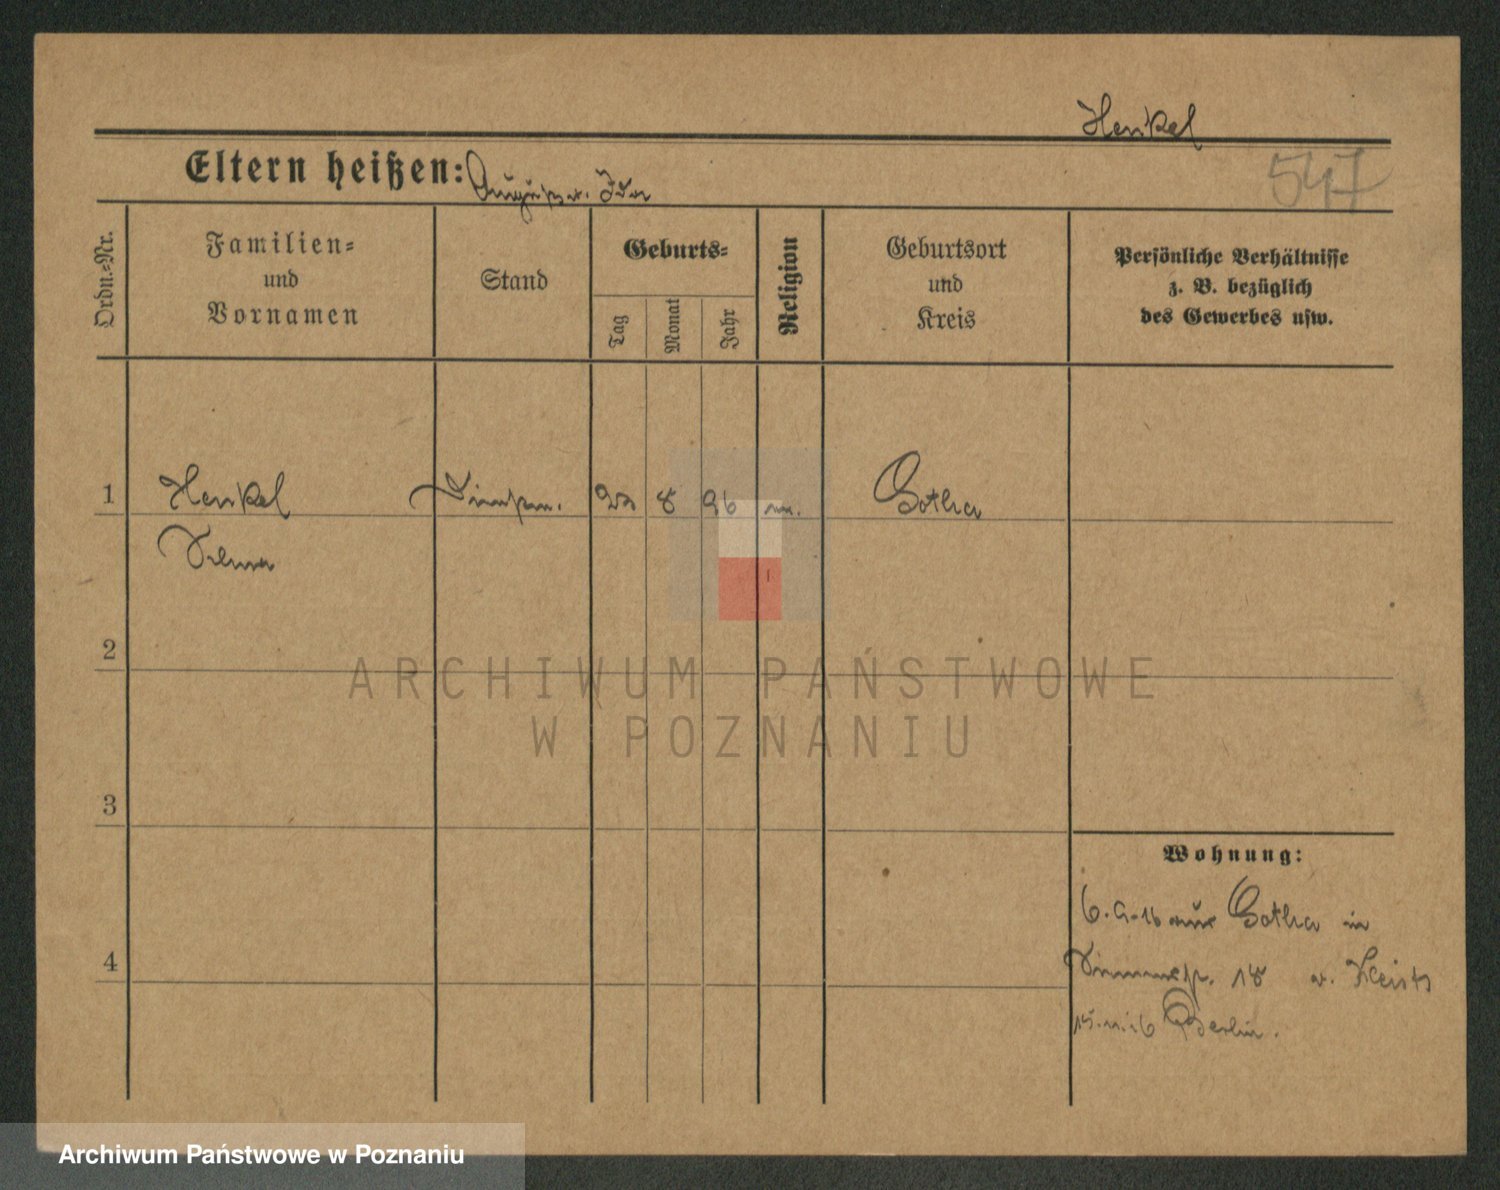 Henkel
547
Eltern heißen: August u. Ida
Ordn.-Nr.
Familien-
und
Vornamen
Stand
Geburts-
Tag
Monat
Jahr
Religion
Geburtsort
und
Kreis
Persönliche Verhältnisse
z. B. bezüglich
des Gewerbes usw.
1 Henkel 8 96 Gotha
Selma
2
ARCHIWUM PAŃSTWOWE
W POZNANIU
3
Wohnung:
6.9.16 aus Gotha in
4
18 v. Kleist
Berlin.
Archiwum Państwowe w Poznaniu